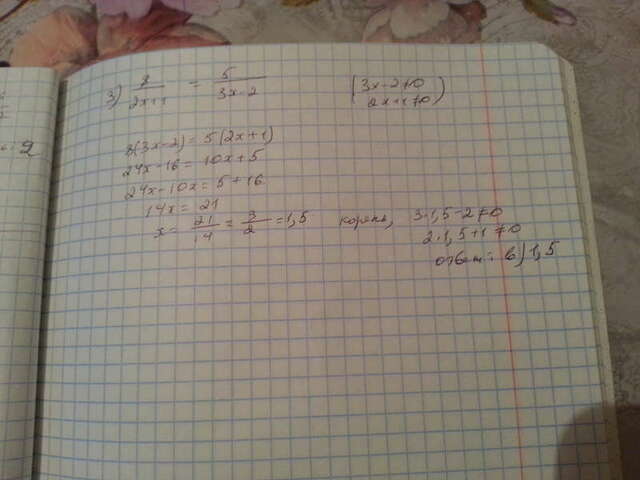 3) 8/(2x+1) = 5/(3x-2) (3x-2≠0
2x+1≠0)
8(3x-2) = 5(2x+1)
24x-16 = 10x+5
24x-10x = 5+16
14x = 21
x = 21/14 = 3/2 = 1,5 корень, 3·1,5-2≠0
2·1,5+1≠0
ответ: в) 1,5
2